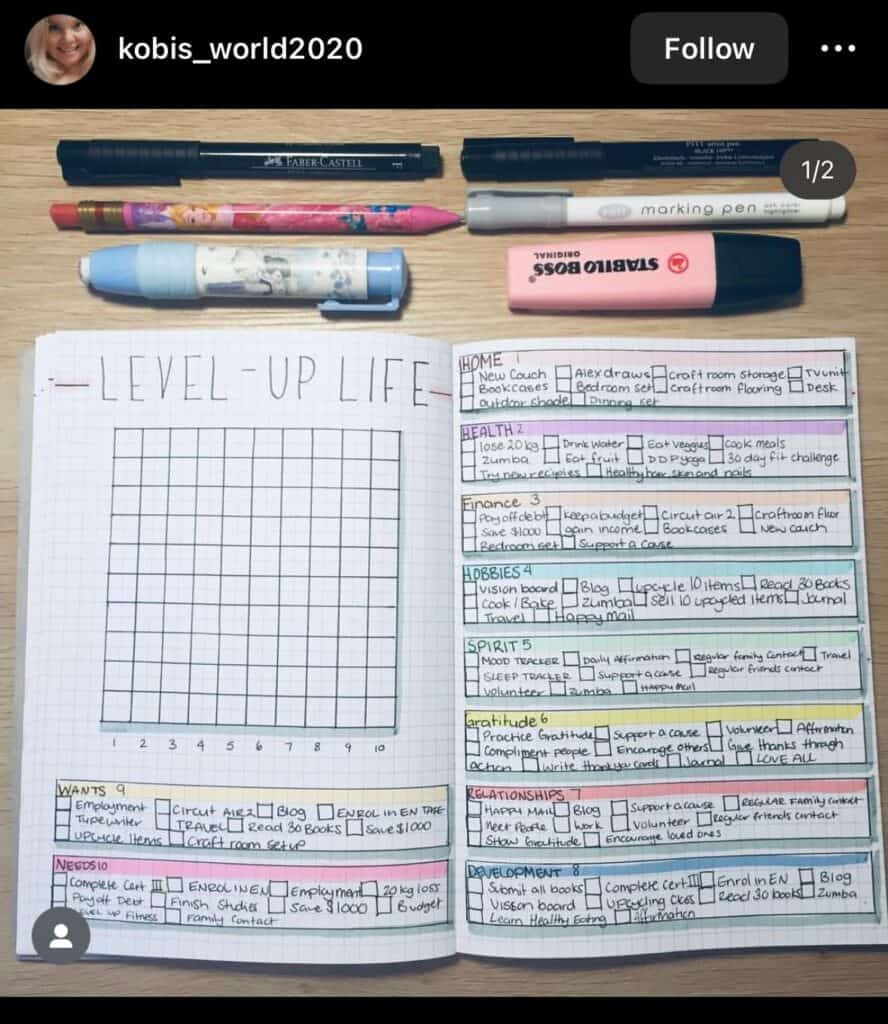 kobis_world2020
Follow
1/2
FABER-CASTELL
PITT artist pen
marking pen
STABILO BOSS
ORIGINAL
LEVEL-UP LIFE
1 2 3 4 5 6 7 8 9 10
WANTS 9
Employment Circut AIR2 Blog ENROL IN EN TAFE
Typewriter TRAVEL Read 30 Books Save $1000
UPCYCLE Items Craft room setup
NEEDS 10
Complete Cert III ENROL IN EN Employment 20 kg loss
Pay off Debt Finish Studies Save $1000 Budget
Level up Fitness Family Contact
HOME 1
New Couch Alex draws Craft room storage TV unit
Bookcases Bedroom set Craft room flooring Desk
Outdoor shade Dinning set
HEALTH 2
lose 20 kg Drink Water Eat veggies Cook meals
Zumba Eat fruit DDP yoga 30 day fit challenge
Try new recipies Healthy hair skin and nails
Finance 3
Pay off debt keep a budget Circuit air 2 Craftroom floor
Save $1000 gain income Bookcases New couch
Bedroom set Support a cause
HOBBIES 4
Vision board Blog upcycle 10 items Read 30 Books
Cook / Bake Zumba Sell 10 upcycled items Journal
Travel Happy mail
SPIRIT 5
MOOD TRACKER Daily Affirmation Regular family contact Travel
SLEEP TRACKER Support a cause Regular friends contact
Volunteer Zumba Happy Mail
Gratitude 6
Practice Gratitude Support a cause Volunteer Affirmation
Compliment people Encourage others Give thanks through
action Write thank you cards Journal LOVE ALL
RELATIONSHIPS 7
HAPPY MAIL Blog Support a cause REGULAR FAMILY contact
Meet People Work Volunteer Regular friends contact
Show Gratitude Encourage loved ones
DEVELOPMENT 8
Submit all books Complete Cert III Enrol in EN Blog
Vision board Upcycling Read 30 books Zumba
Learn Healthy Eating Affirmation